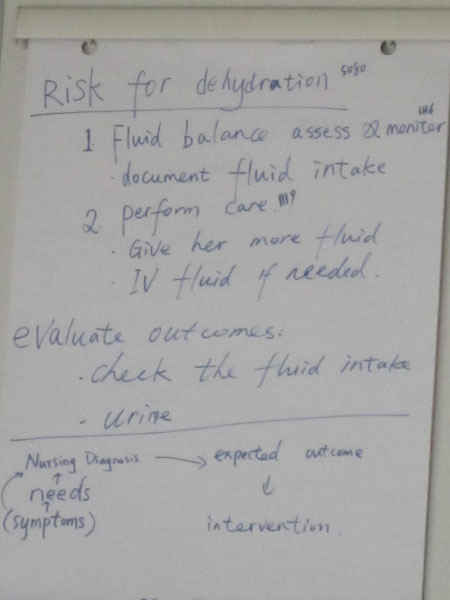 Risk for dehydration 5080
1 Fluid balance assess & moniter 1116
· document fluid intake
2. perform care. 1119
· Give her more fluid
· IV fluid if needed.
evaluate outcomes:
· check the fluid intake
- urine
Nursing Diagnosis → expected outcome
↑ ↓
needs
↑
(symptoms) intervention.